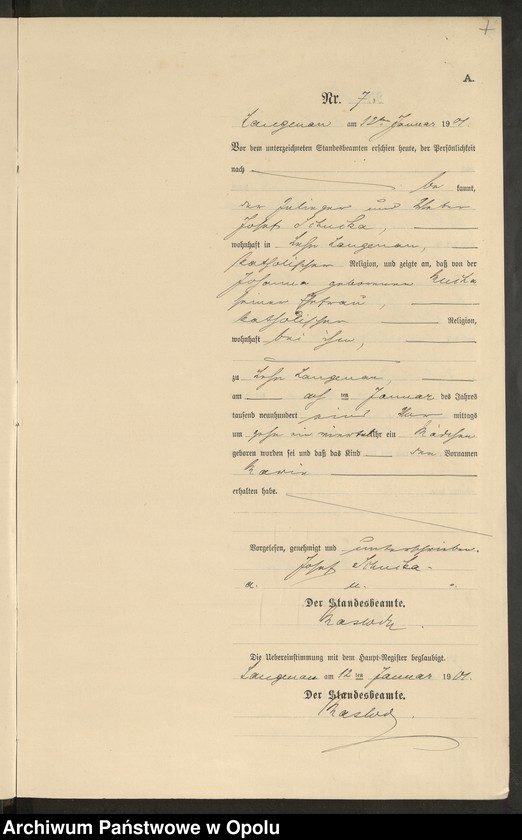 7
A.
Nr. 7.
Langenau am 12ten Januar 1901.
Vor dem unterzeichneten Standesbeamten erschien heute, der Persönlichkeit
nach be kannt,
der und
Josef
wohnhaft in Langenau,
katholischer Religion, und zeigte an, daß von der
Johanna geborenen
seiner Ehefrau,
katholischer Religion,
wohnhaft bei ihm,
zu Langenau,
am im Januar des Jahres
tausend neunhundert eins Vor mittags
um zehn ein viertel Uhr ein Mädchen
geboren worden sei und daß das Kind den Vornamen
Maria
erhalten habe.
Vorgelesen, genehmigt und unterschrieben.
Josef
Der Standesbeamte.
Die Uebereinstimmung mit dem Haupt-Register beglaubigt.
Langenau am 12 ten Januar 1901.
Der Standesbeamte.
Archiwum Państwowe w Opolu